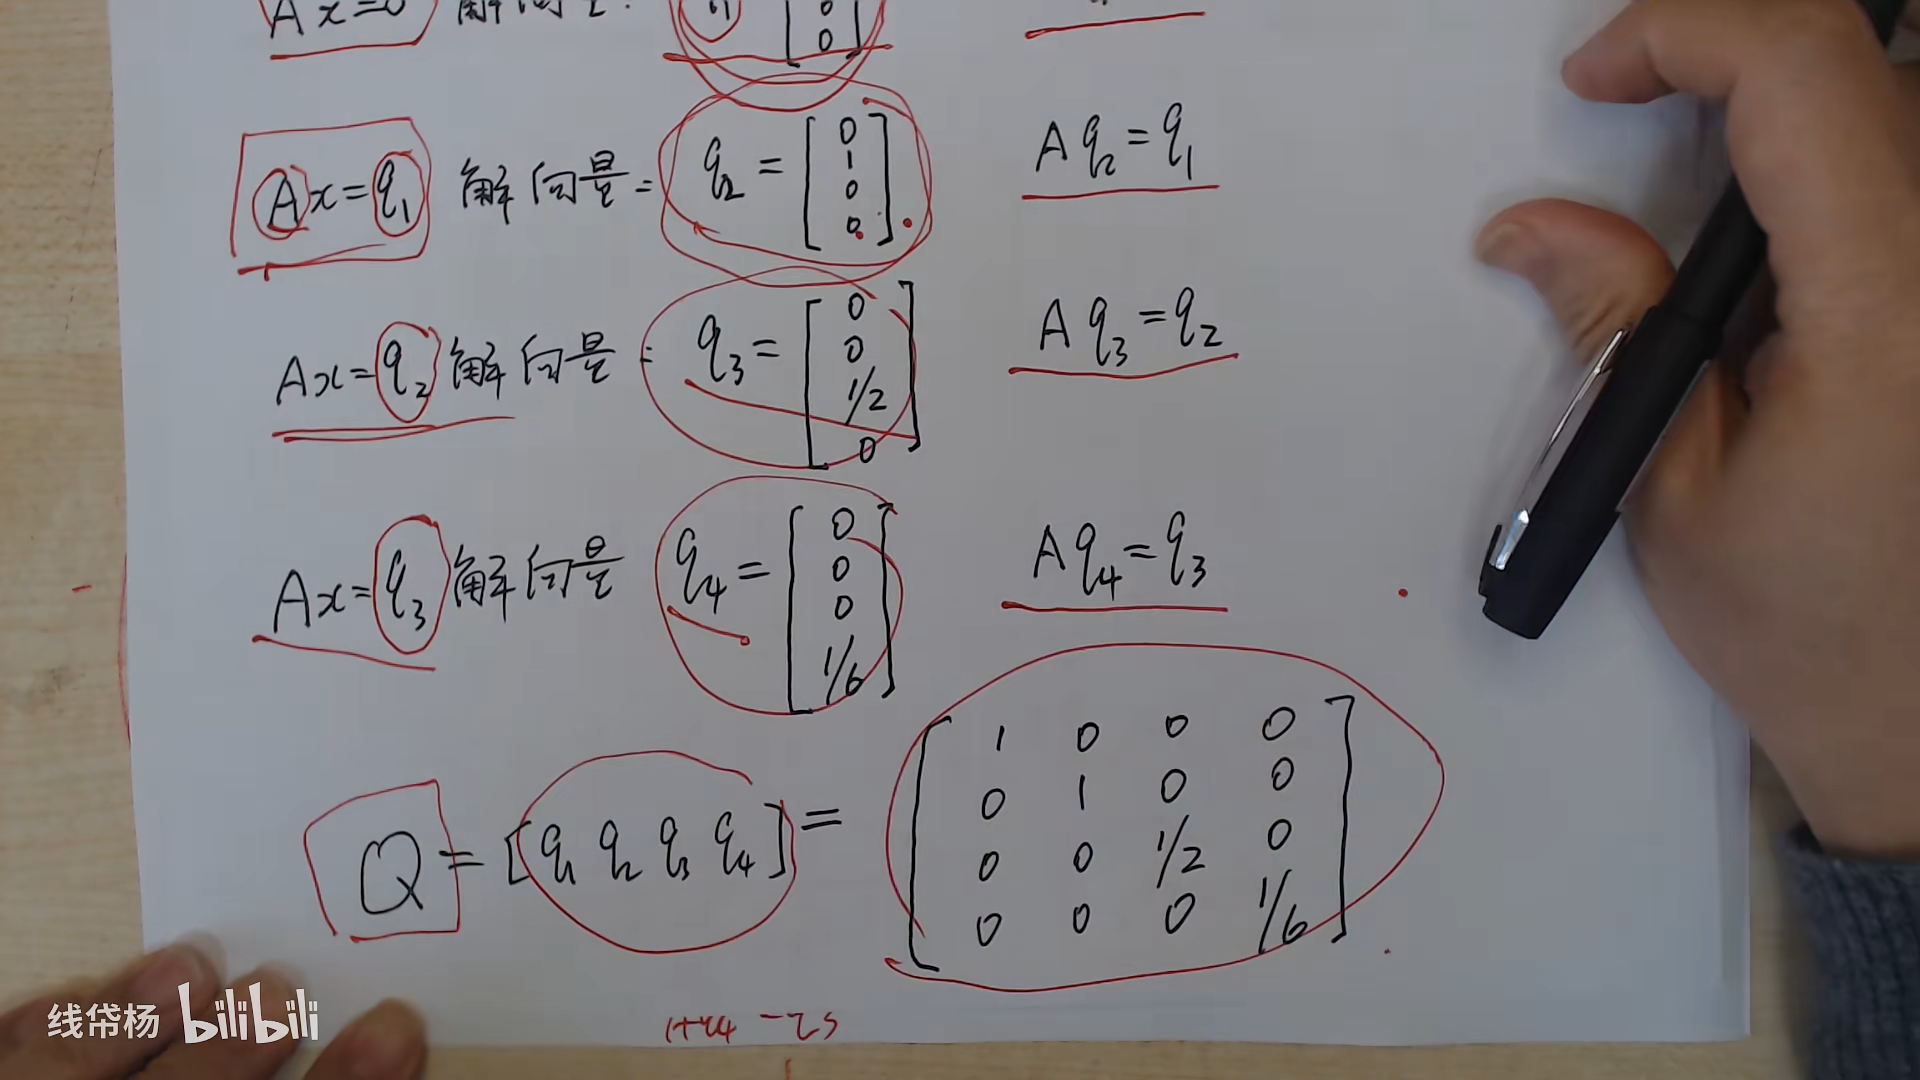 Ax=0 解向量: q1 [0 0]
Ax=q1 解向量= q2= [0 1 0 0] Aq2=q1
Ax=q2 解向量: q3= [0 0 1/2 0] Aq3=q2
Ax=q3 解向量 q4= [0 0 0 1/6] Aq4=q3
Q=[q1 q2 q3 q4]=
1 0 0 0
0 1 0 0
0 0 1/2 0
0 0 0 1/6
线帒杨 bilibili